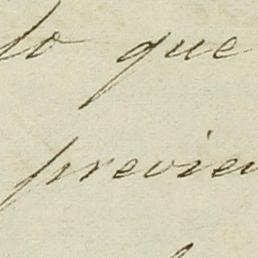 lo que
previen